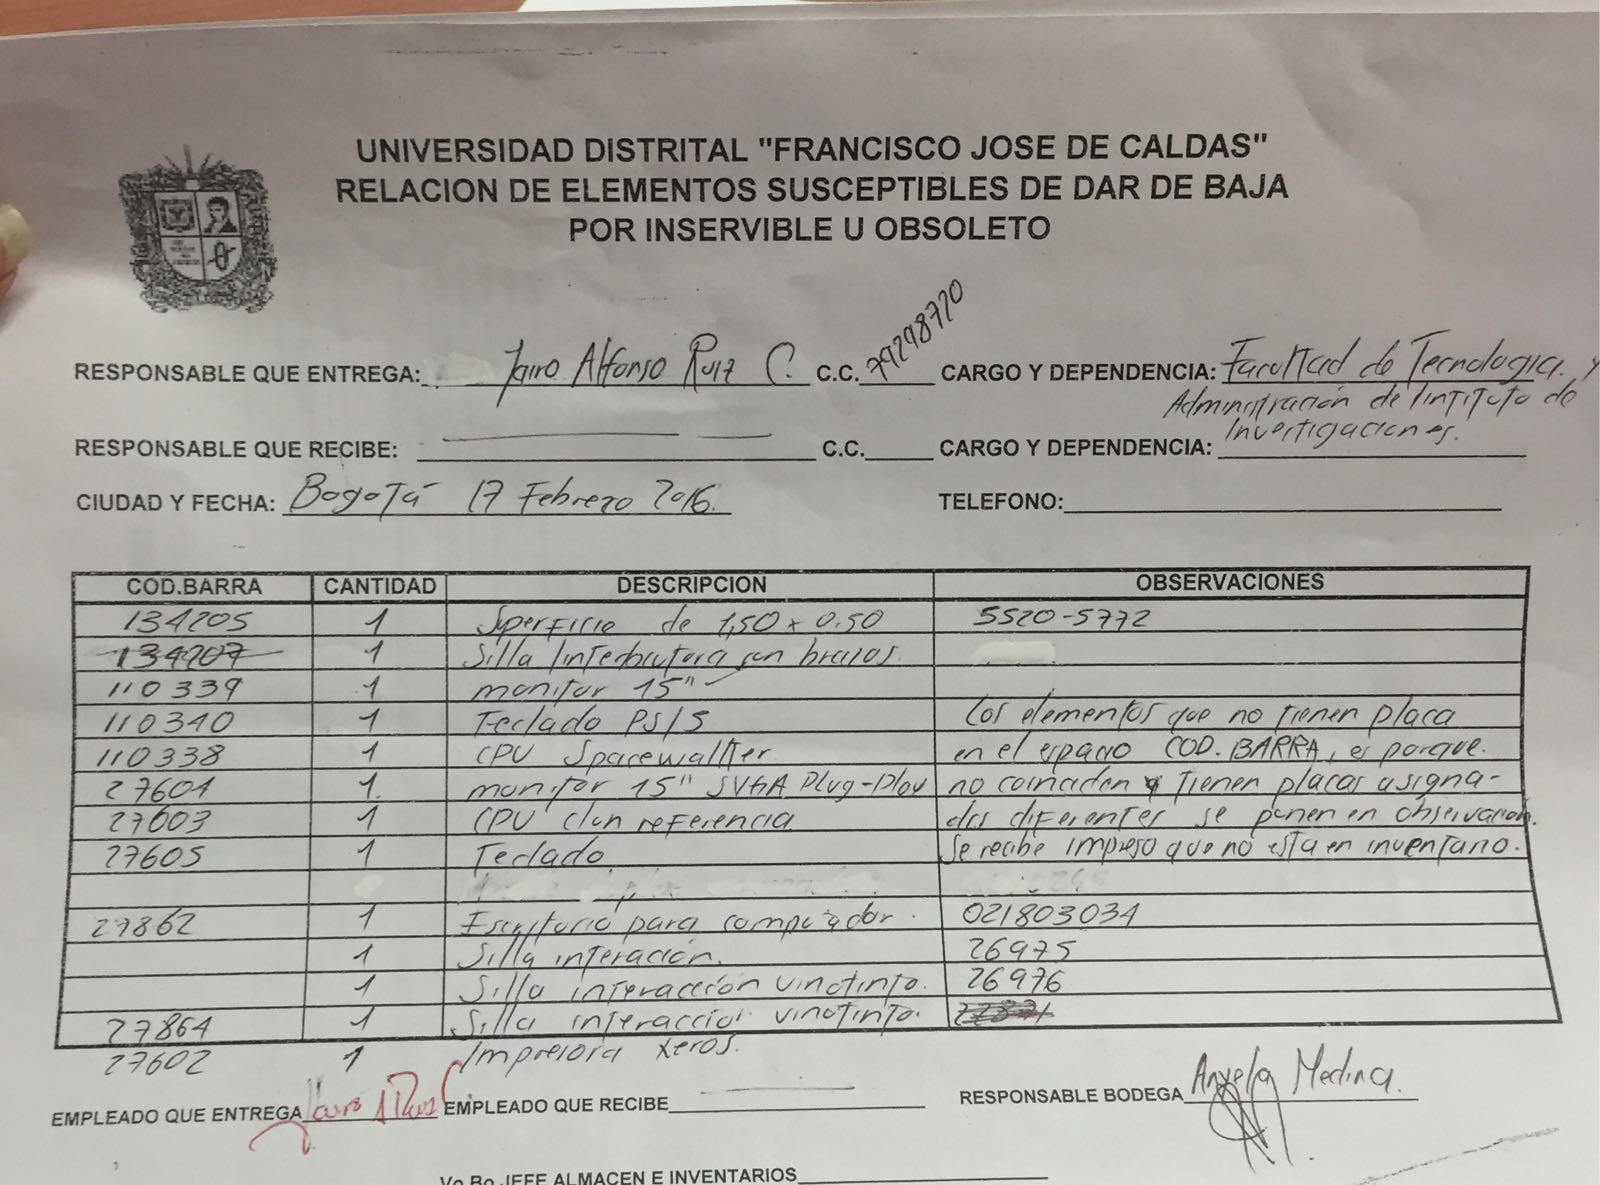 UNIVERSIDAD DISTRITAL "FRANCISCO JOSE DE CALDAS"
RELACION DE ELEMENTOS SUSCEPTIBLES DE DAR DE BAJA
POR INSERVIBLE U OBSOLETO
RESPONSABLE QUE ENTREGA: Jairo Alfonso Ruiz C. C.C. 79298720 CARGO Y DEPENDENCIA: Facultad de Tecnología y
Administración de Instituto de
Investigaciones.
RESPONSABLE QUE RECIBE: C.C. CARGO Y DEPENDENCIA:
CIUDAD Y FECHA: Bogotá 17 Febrero 2016. TELEFONO:
COD.BARRA CANTIDAD DESCRIPCION OBSERVACIONES
134205 1 Superficie de 1,50 x 0.50 5520-5772
134207 1 Silla con brazos.
110339 1 monitor 15"
110340 1 Teclado PS/S Los elementos que no tienen placa
110338 1 CPU Sparewallter en el espacio COD. BARRA, es porque.
27601 1. monitor 15" SVGA Plug-Play no coinciden y tienen placas asigna-
27603 1 CPU clon referencia das diferentes se ponen en observacion.
27605 1 Teclado Se recibe impreso que no esta en inventario.
27862 1 Escritorio para computador. 021803034
1 Silla interación. 26975
1 Silla interacción vinotinto. 26976
27864 1 Silla interaccion vinotinto.
27602 1 Impresora xeros.
EMPLEADO QUE ENTREGA Jairo A Ruiz C EMPLEADO QUE RECIBE RESPONSABLE BODEGA Anyela Medina.
Vo.Bo JEFE ALMACEN E INVENTARIOS